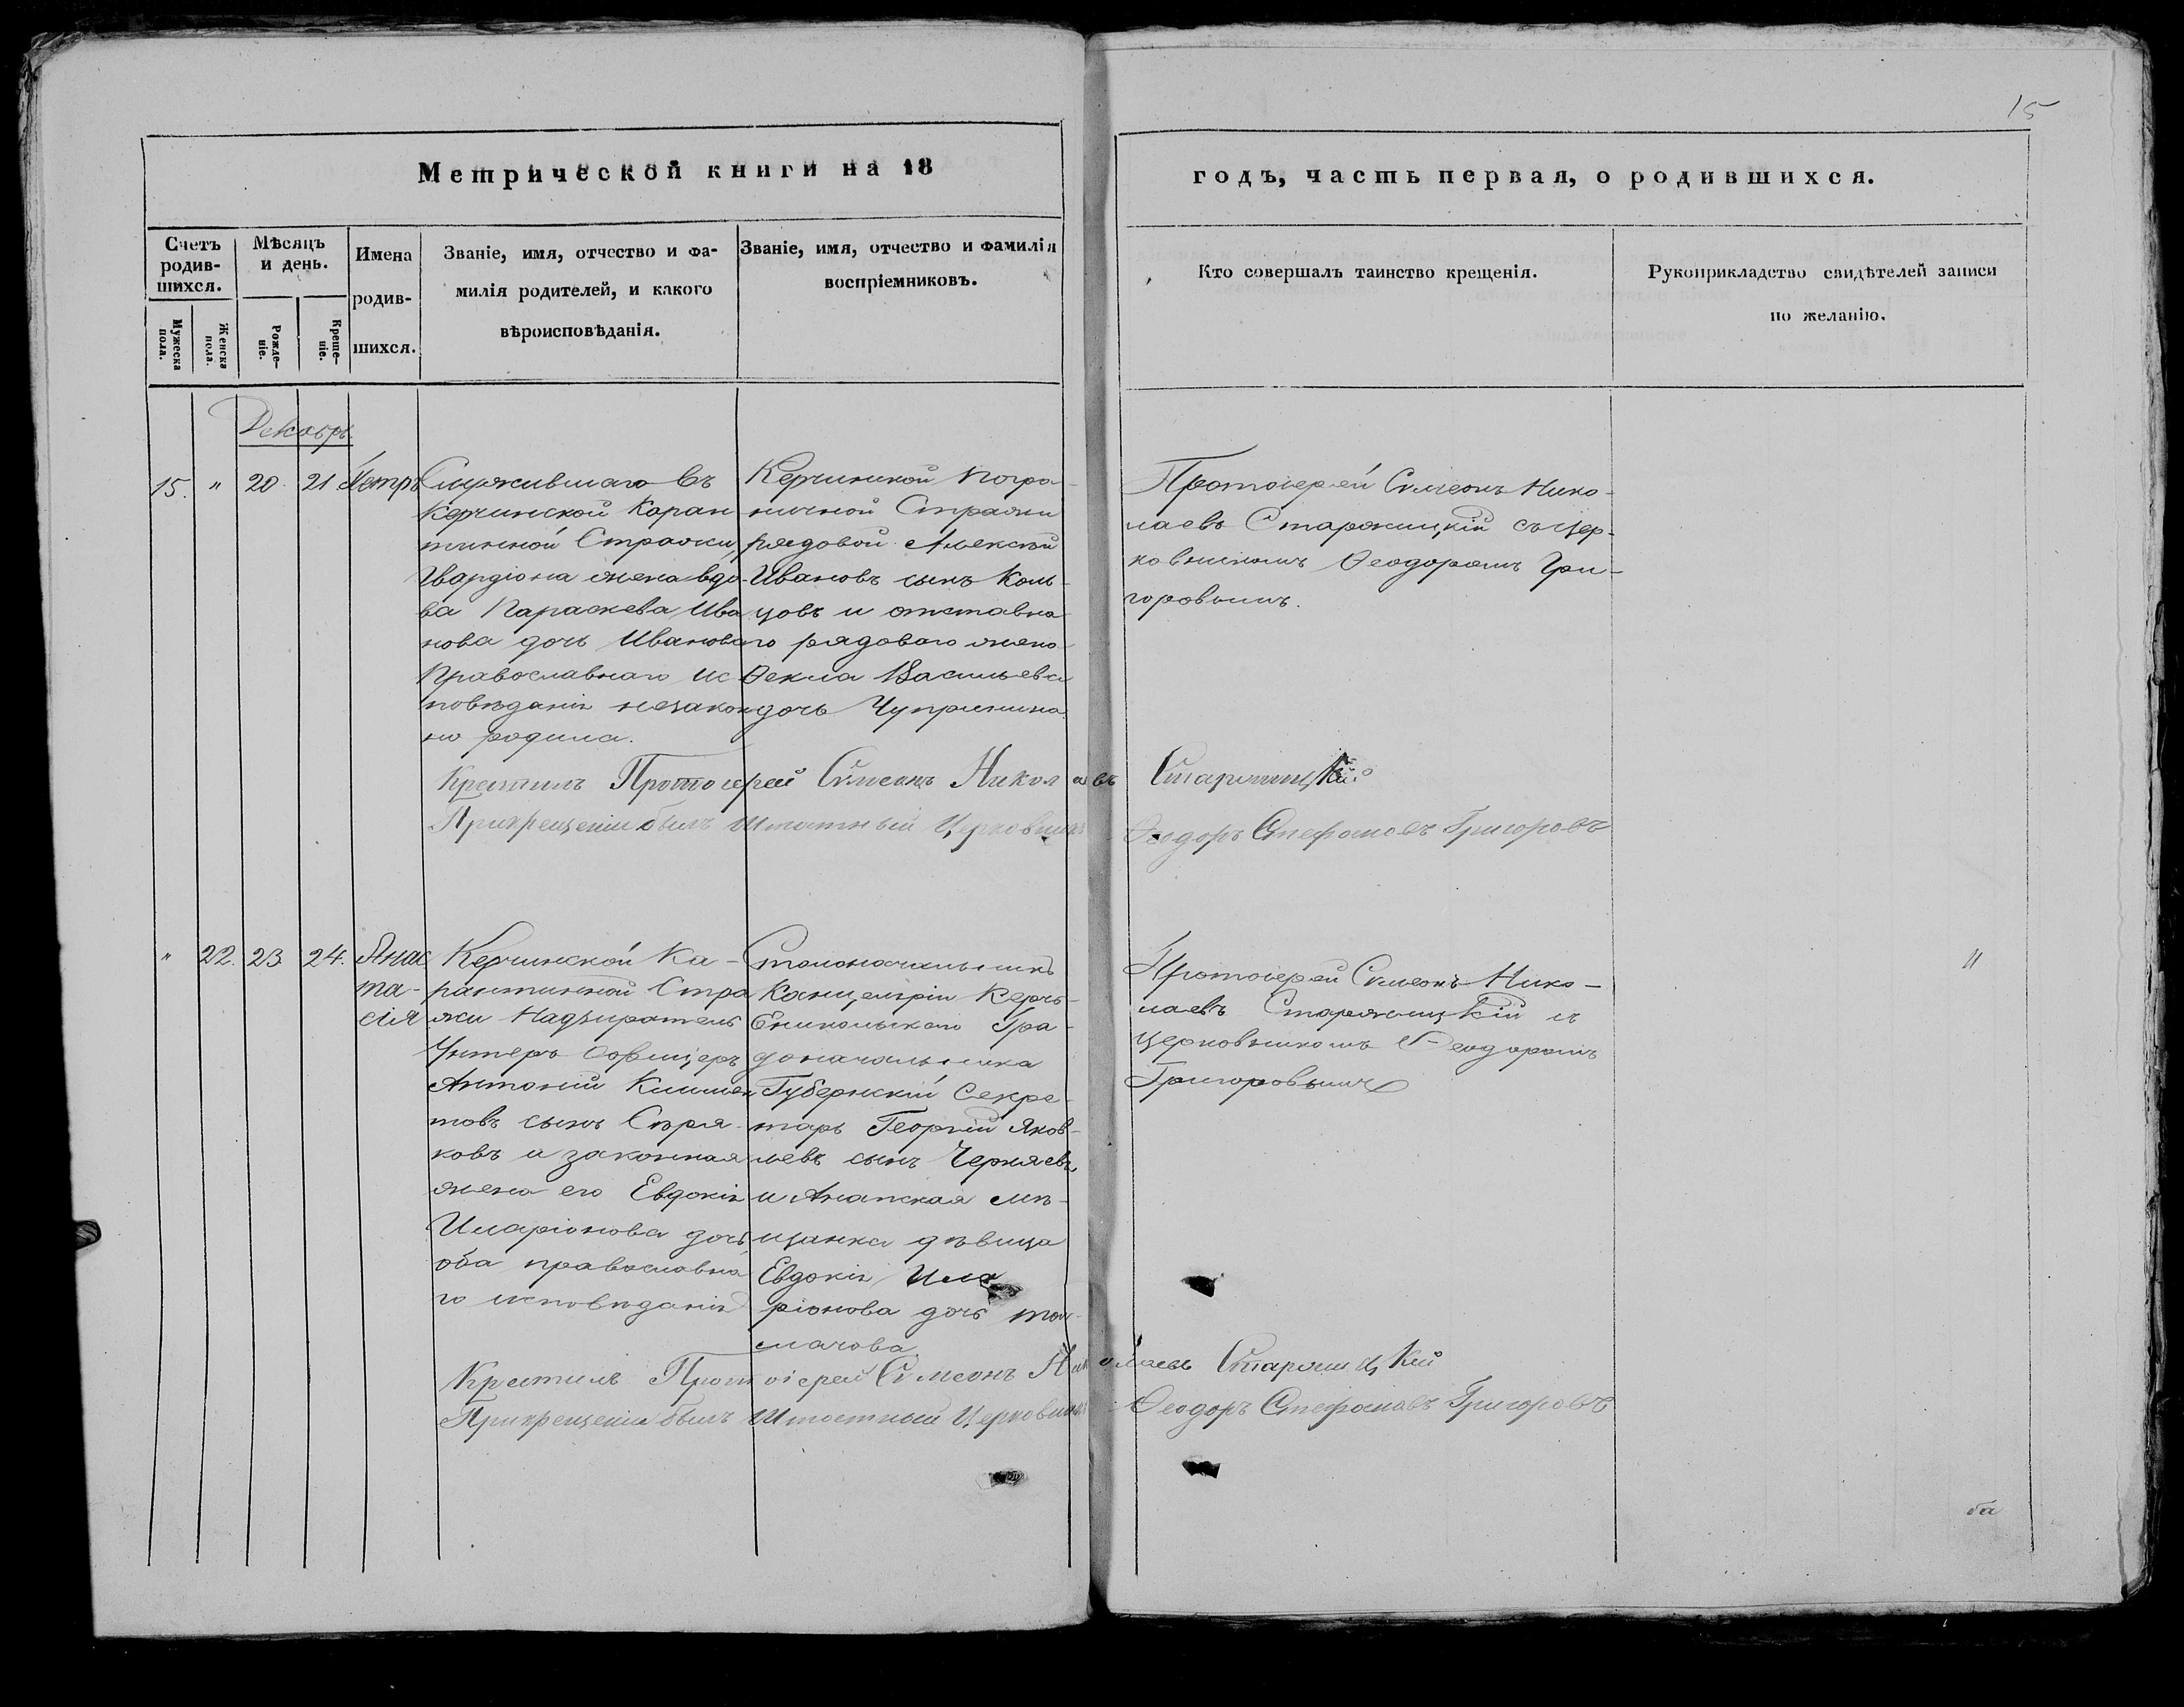 15
Метрической книги на 18
годъ, часть первая, о родившихся.
Счетъ родив-шихся.
Мужеска пола.
Женска пола.
Мѣсяцъ и день.
Рожде-ніе.
Креще-ніе.
Имена
родив-
шихся.
Званіе, имя, отчество и фа-
милія родителей, и какого
вѣроисповѣданія.
Званіе, имя, отчество и фамилія
воспріемниковъ.
Кто совершалъ таинство крещенія.
Рукоприкладство свидѣтелей записи
по желанію.
Декабрь.
15. " 20. 21 Петръ
Служившаго въ
Керчинской Каран
тинной Стражи
Гвардіона жена вдо-
ва Параскева Ива
нова дочь Иванова
Православнаго ис
повѣданія незакон
но родила.
Керчинской погра-
ничной Стражи
рядовой Алексѣй
Ивановъ сынъ Коль-
цовъ и отставна
го рядоваго жена
Ѳекла Васильева
дочь Чупринина.
Протоіерей Симеонъ Нико-
лаевъ Старжицкій съ цер-
ковникомъ Ѳеодоромъ Гри-
горовымъ.
Крестилъ Протоіерей Симеонъ Николаевъ
При крещеніи былъ Штатный Церковникъ Ѳеодоръ Стефановъ Григоровъ
" 22. 23 24.
Анас
та-
сія
Керчинской Ка-
рантинной Стра
жи Надзиратель
Унтеръ Офицеръ
Антоній Климен
товъ сынъ
ковъ и законная
жена его Евдокія
Иларіонова дочь
оба православна
го исповѣданія
Столоначальникъ
Канцеляріи Керчь-
Еникольскаго Гра-
доначальника
Губернскій Секре-
тарь Георгій Яков-
левъ сынъ Черняевъ
и Анапская мѣ-
щанка дѣвица
Евдокія Ила
ріонова дочь Тол-
мачова
Протоіерей Симеонъ Нико-
лаевъ Старжицкій съ
церковникомъ Ѳеодоромъ
Григоровымъ
"
Крестилъ Протоіерей Симеонъ Николаевъ
При крещеніи былъ Штатный Церковникъ Ѳеодоръ Стефановъ Григоровъ
ба